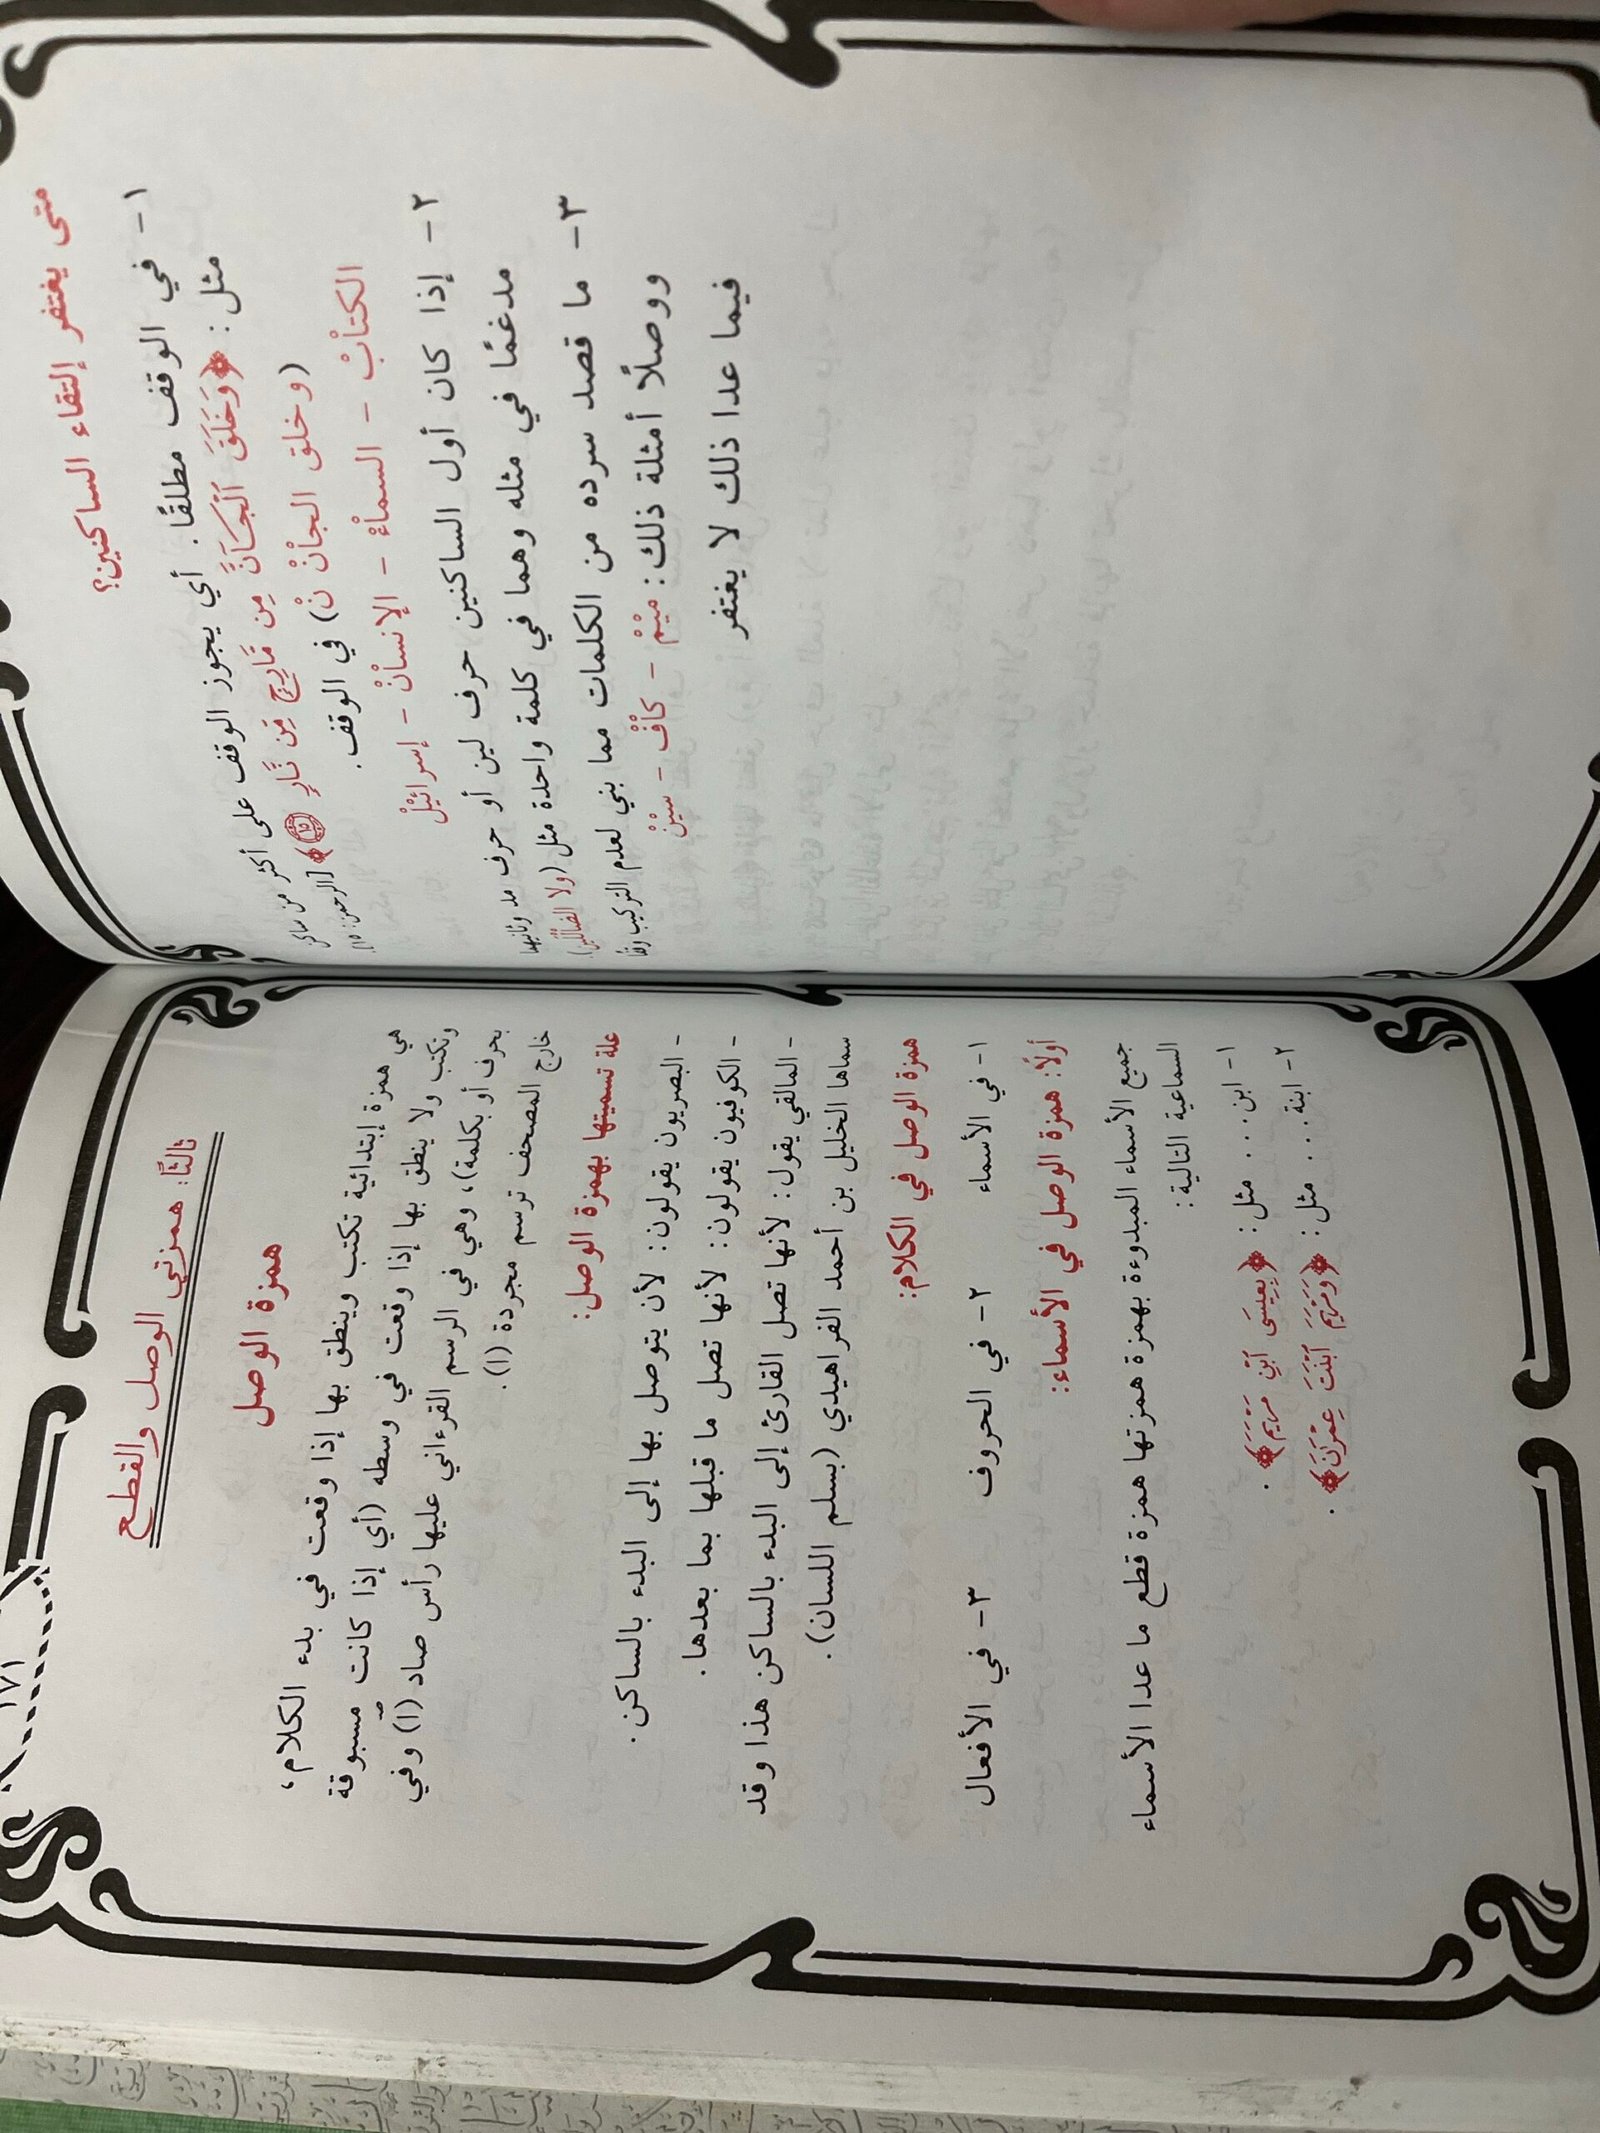 متى يغتفر إلتقاء الساكنين؟
١- في الوقف مطلقًا. أي يجوز الوقف على أكثر من ساكن
مثل: ﴿وَخَلَقَ ٱلْجَآنَّ مِن مَّارِجٍ مِّن نَّارٍ ١٥﴾ [الرحمن: ١٥].
(وخلق الجاْنْ نْ) في الوقف.
الكتاْبْ - السماْءْ - الإنساْنْ - إسرائيْلْ
٢- إذا كان أول الساكنين حرف لين أو حرف مد وثانيهما
مدغمًا في مثله وهما في كلمة واحدة مثل (ولا الضالين).
٣- ما قصد سرده من الكلمات مما بني لعدم التركيب وقفًا
ووصلًا أمثلة ذلك: ميْمْ - كاْفْ - سيْنْ
فيما عدا ذلك لا يغتفر
١٧١
ثالثًا: همزتي الوصل والقطع
همزة الوصل
هي همزة إبتدائية تكتب وينطق بها إذا وقعت في بدء الكلام،
وتكتب ولا ينطق بها إذا وقعت في وسطه (أي إذا كانت مسبوقة
بحرف أو بكلمة)، وهي في الرسم القرءاني عليها رأس صاد (ٱ) وفي
خارج المصحف ترسم مجردة (ا).
علة تسميتها بهمزة الوصل:
- البصريون يقولون: لأن يتوصل بها إلى البدء بالساكن.
- الكوفيون يقولون: لأنها تصل ما قبلها بما بعدها.
- المالقي يقول: لأنها تصل القارئ إلى البدء بالساكن هذا وقد
سماها الخليل بن أحمد الفراهيدي (بسلم اللسان).
همزة الوصل في الكلام:
١- في الأسماء ٢- في الحروف ٣- في الأفعال
أولًا: همزة الوصل في الأسماء:
جميع الأسماء المبدوءة بهمزة همزتها همزة قطع ما عدا الأسماء
السماعية التالية:
١- ابن ... مثل: ﴿بِعِيسَى ٱبْنِ مَرْيَمَ﴾.
٢- ابنة ... مثل: ﴿وَمَرْيَمَ ٱبْنَتَ عِمْرَٰنَ﴾.